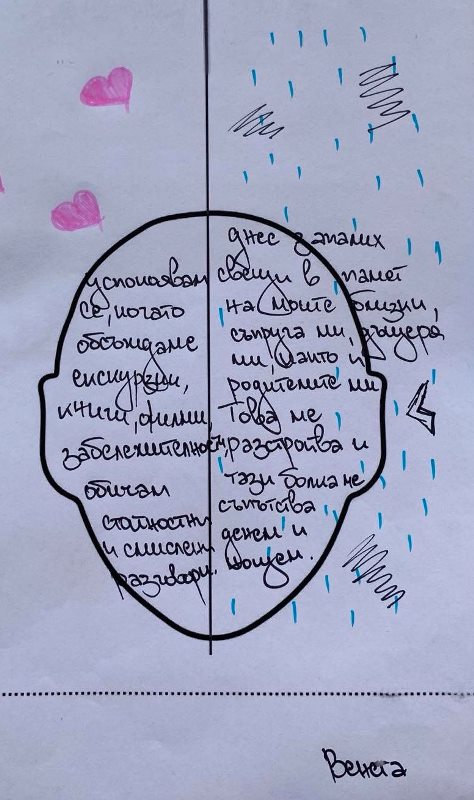 успокоявам
се, когато
обсъждаме
екскурзии,
книги, филми,
забележителности,
обичам
стойностни
и смислени
разговори.
днес запалих
свещи в памет
на моите близки,
съпруга ми, дъщеря
ми, както и
родителите ми
Това ме
разстройва и
тази болка ме
съпътства
денем и
нощем.
Венета